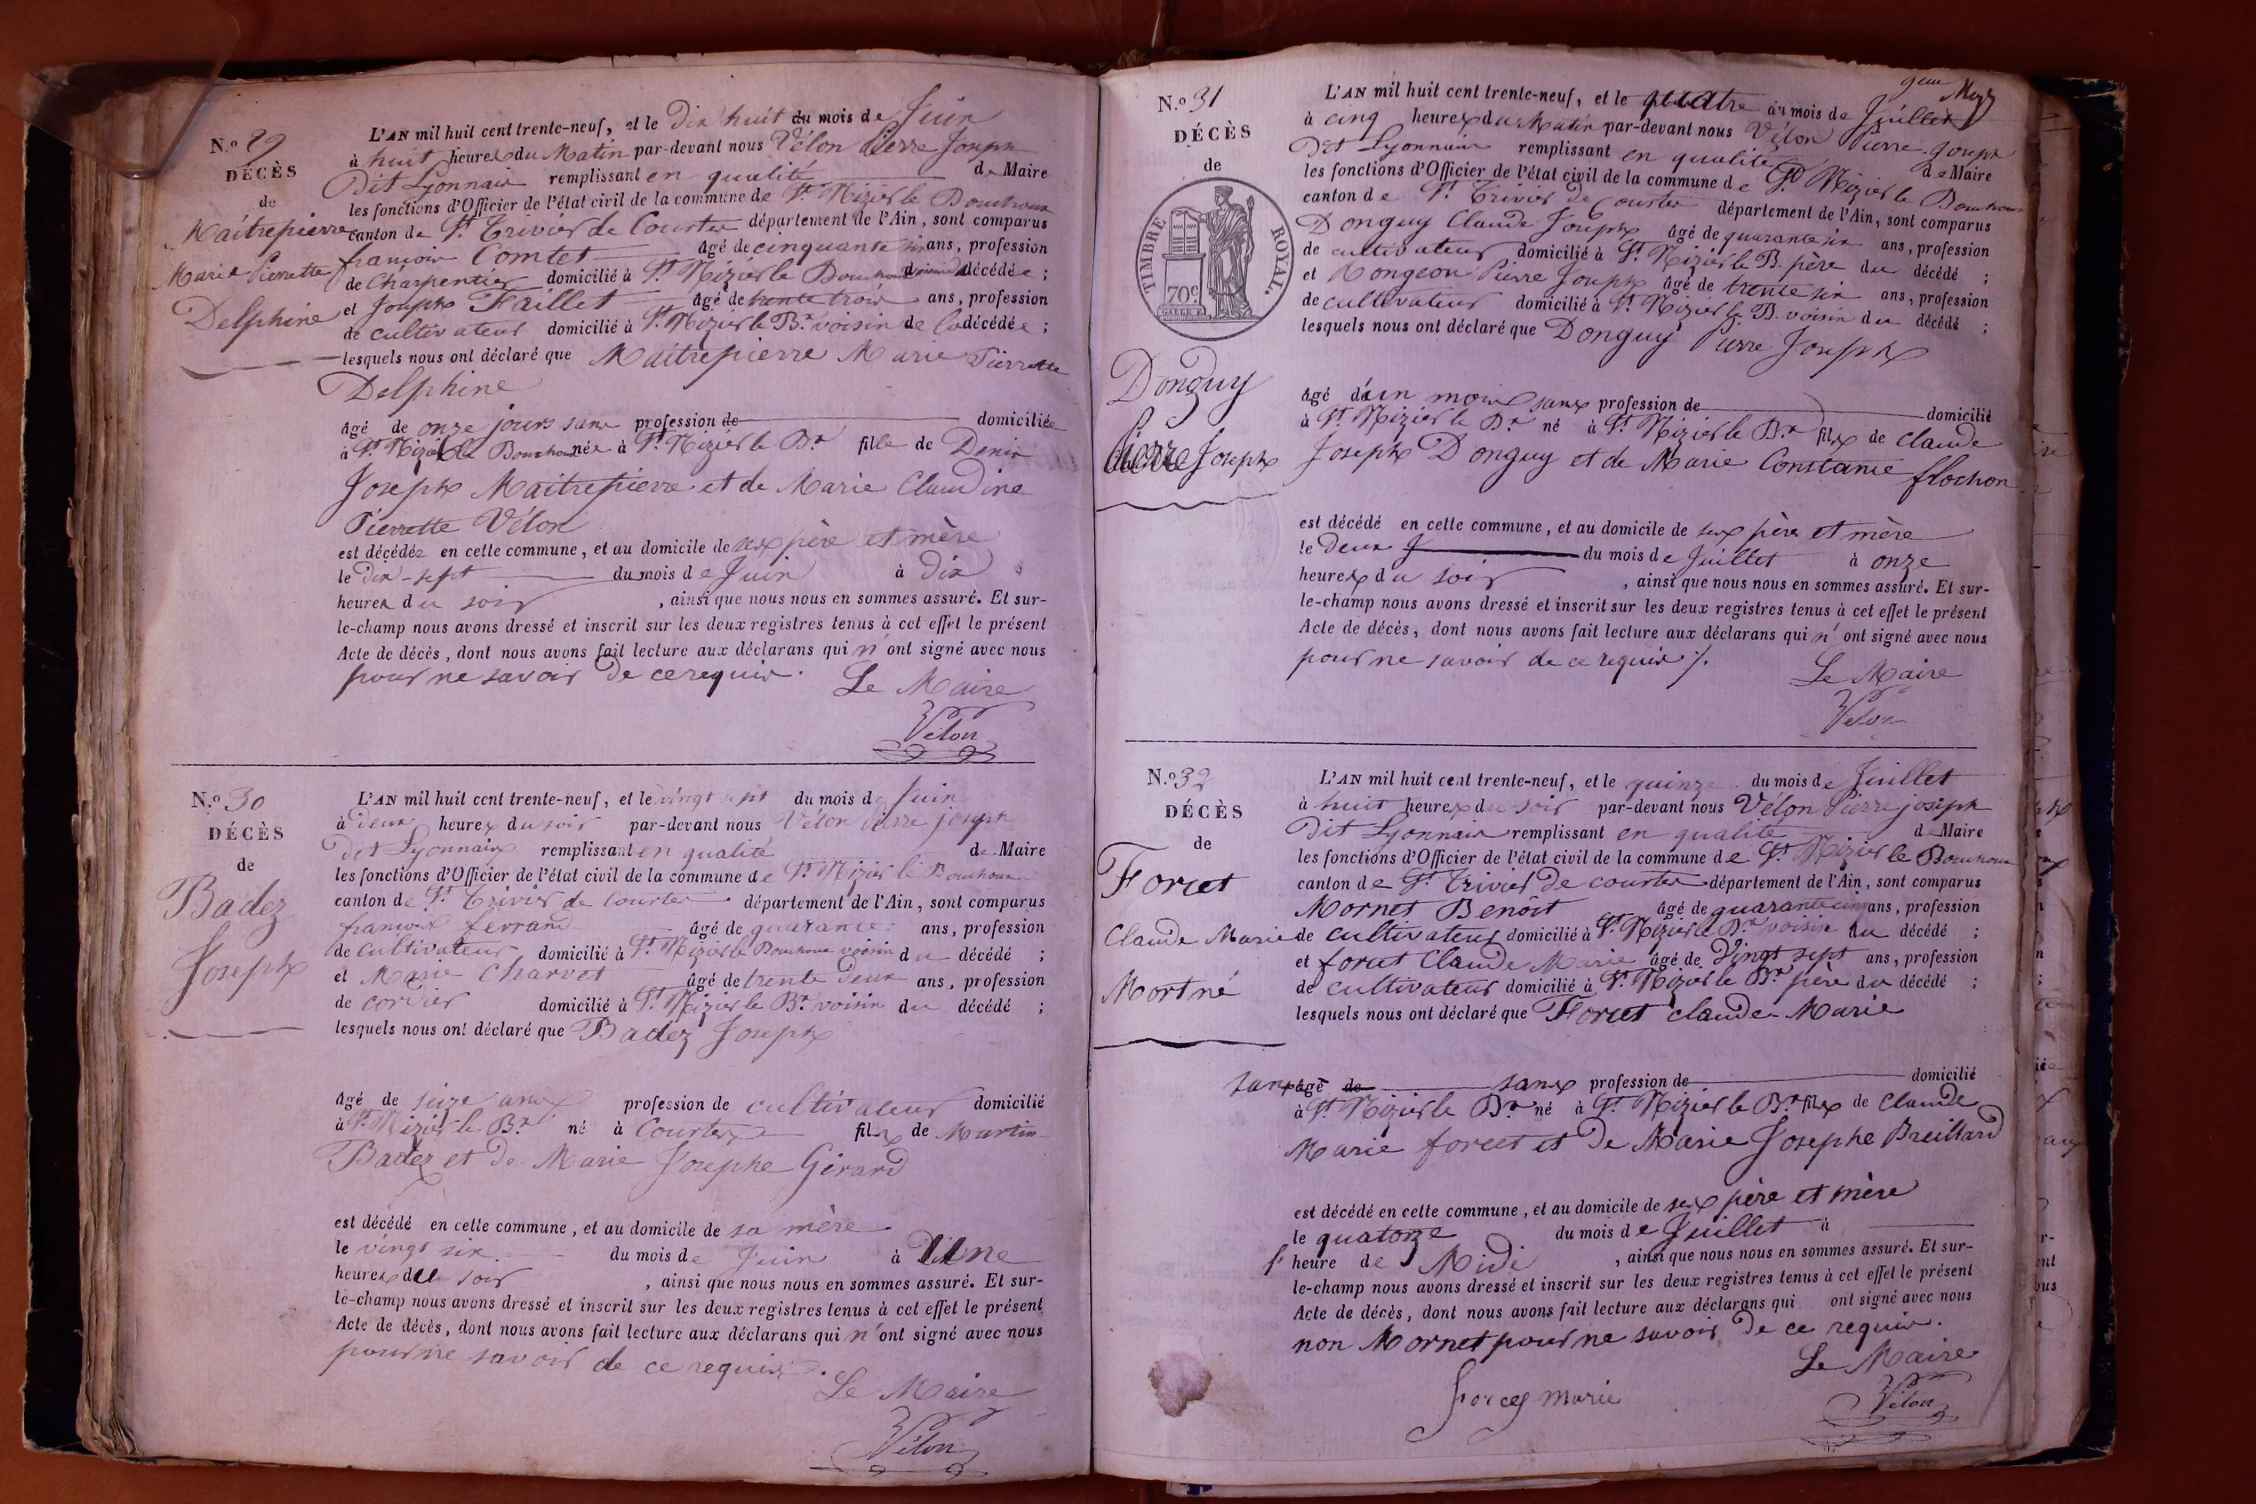 N.º 29
DÉCÈS
de
Maîtrepierre
Marie Pierrette
Delphine
L'AN mil huit cent trente-neuf, et le Dix huit du mois de Juin
à huit heures du Matin par-devant nous Vélon Pierre Joseph
Dit Lyonnais remplissant en qualité de Maire
les fonctions d'Officier de l'état civil de la commune de St. Nizier le Bouchoux
canton de St. Trivier de Courtes département de l'Ain, sont comparus
françois Comtet âgé de cinquante six ans, profession
de Charpentier domicilié à St. Nizier le Bouchoux décédée ;
et Joseph Faillet âgé de trente trois ans, profession
de cultivateur domicilié à St. Nizier le Bx. voisin de la décédée ;
lesquels nous ont déclaré que Maîtrepierre Marie Pierrette
Delphine
âgé de onze jours sans profession de domiciliée
à St. Nizier le Bouchoux née à St. Nizier le Bx. fille de Denis
Joseph Maitrepierre et de Marie Claudine
Pierrette Vélon
est décédée en cette commune, et au domicile de ses père et mère
le dix-sept du mois de Juin à Dix
heures du soir , ainsi que nous nous en sommes assuré. Et sur-
le-champ nous avons dressé et inscrit sur les deux registres tenus à cet effet le présent
Acte de décès, dont nous avons fait lecture aux déclarans qui n'ont signé avec nous
pour ne savoir de ce requis.
Le Maire
Vélon
N.º 30
DÉCÈS
de
Badez
Joseph
L'AN mil huit cent trente-neuf, et le vingt sept du mois de Juin
à deux heures du soir par-devant nous Vélon pierre joseph
Dit Lyonnais remplissant en qualité de Maire
les fonctions d'Officier de l'état civil de la commune de St. Nizier le Bouchoux
canton de St. Trivier de Courtes département de l'Ain, sont comparus
françois ferrand âgé de quarante ans, profession
de cultivateur domicilié à St. Nizier le Bouchoux voisin du décédé ;
et Marie Charvet âgé de trente deux ans, profession
de cordier domicilié à St. Nizier le Bx. voisin du décédé ;
lesquels nous ont déclaré que Badez Joseph
âgé de seize ans profession de cultivateur domicilié
à St. Nizier le Bx. né à Courtes fils de Martin
Badez et de Marie Josephe Gérard
est décédé en cette commune, et au domicile de sa mère
le vingt six du mois de Juin à Une
heures du soir , ainsi que nous nous en sommes assuré. Et sur-
le-champ nous avons dressé et inscrit sur les deux registres tenus à cet effet le présent
Acte de décès, dont nous avons fait lecture aux déclarans qui n'ont signé avec nous
pour ne savoir de ce requis.
Le Maire
Vélon
N.º 31
DÉCÈS
de
TIMBRE ROYAL.
70c
Donguy
Pierre Joseph
L'AN mil huit cent trente-neuf, et le quatre du mois de Juillet
à cinq heures du Matin par-devant nous Vélon Pierre Joseph
Dit Lyonnais remplissant en qualité de Maire
les fonctions d'Officier de l'état civil de la commune de St. Nizier le Bouchoux
canton de St. Trivier de Courtes département de l'Ain, sont comparus
Donguy Claude Joseph âgé de quarante six ans, profession
de cultivateur domicilié à St. Nizier le B. père du décédé ;
et Rongeon Pierre Joseph âgé de trente six ans, profession
de cultivateur domicilié à St. Nizier le B. voisin du décédé ;
lesquels nous ont déclaré que Donguy Pierre Joseph
âgé d'un mois sans profession de domicilié
à St. Nizier le Bx. né à St. Nizier le Bx. fils de Claude
Joseph Donguy et de Marie Constance flochon
est décédé en cette commune, et au domicile de ses père et mère
le Deux du mois de Juillet à onze
heures du soir , ainsi que nous nous en sommes assuré. Et sur-
le-champ nous avons dressé et inscrit sur les deux registres tenus à cet effet le présent
Acte de décès, dont nous avons fait lecture aux déclarans qui n'ont signé avec nous
pour ne savoir de ce requis ./.
Le Maire
Vélon
N.º 32
DÉCÈS
de
Forcet
Claude Marie
Mort né
L'AN mil huit cent trente-neuf, et le quinze du mois de Juillet
à huit heures du soir par-devant nous Vélon Pierre joseph
Dit Lyonnais remplissant en qualité de Maire
les fonctions d'Officier de l'état civil de la commune de St. Nizier le Bouchoux
canton de St. Trivier de courtes département de l'Ain, sont comparus
Mornet Benôit âgé de quarante cinq ans, profession
de cultivateur domicilié à St. Nizier le Bx. voisin du décédé ;
et forcet Claude Marie âgé de Vingt sept ans, profession
de cultivateur domicilié à St. Nizier le Bx. père du décédé ;
lesquels nous ont déclaré que Forcet claude Marie
sans âgé de sans profession de domicilié
à St. Nizier le Bx. né à St. Nizier le Bx. fils de Claude
Marie forcet et de Marie Josephe Breillard
est décédé en cette commune, et au domicile de ses père et mère
le quatorze du mois de Juillet à
heure de Midi , ainsi que nous nous en sommes assuré. Et sur-
le-champ nous avons dressé et inscrit sur les deux registres tenus à cet effet le présent
Acte de décès, dont nous avons fait lecture aux déclarans qui ont signé avec nous
non Mornet pour ne savoir de ce requis.
Le Maire
forcet marie
Vélon